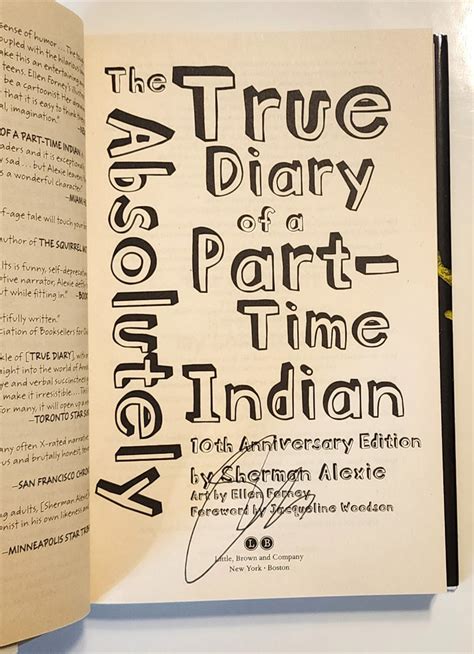 sense of humor . . . The
coupled with the hilarious
make this an entertaining
teens. Ellen Forney's
be a cartoonist. Her
that it is easy to think
al, imagination."
OF A PART-TIME INDIAN
eaders and it is
y sad . . . but Alexie
s a wonderful character."
-MIAMI
-age tale will touch your
author of THE SQUIRREL
Its is funny, self-deprecating
tive narrator, Alexie
out while fitting in."
tifully written."
ciation of Booksellers for
kle of [TRUE DIARY],
aight into the world of
ye and verbal
make it irresistible. . . . This
for many, it will open up a
-TORONTO STAR
any often X-rated
us and brutally honest,
-SAN FRANCISCO
ng adults, [Sherman Alexie]
tionist in his own likeness and
-MINNEAPOLIS STAR
The Absolutely
True
Diary
of a
Part-
Time
Indian
10th Anniversary Edition
by Sherman Alexie
Art by Ellen Forney
Foreword by Jacqueline Woodson
L B
Little, Brown and Company
New York · Boston